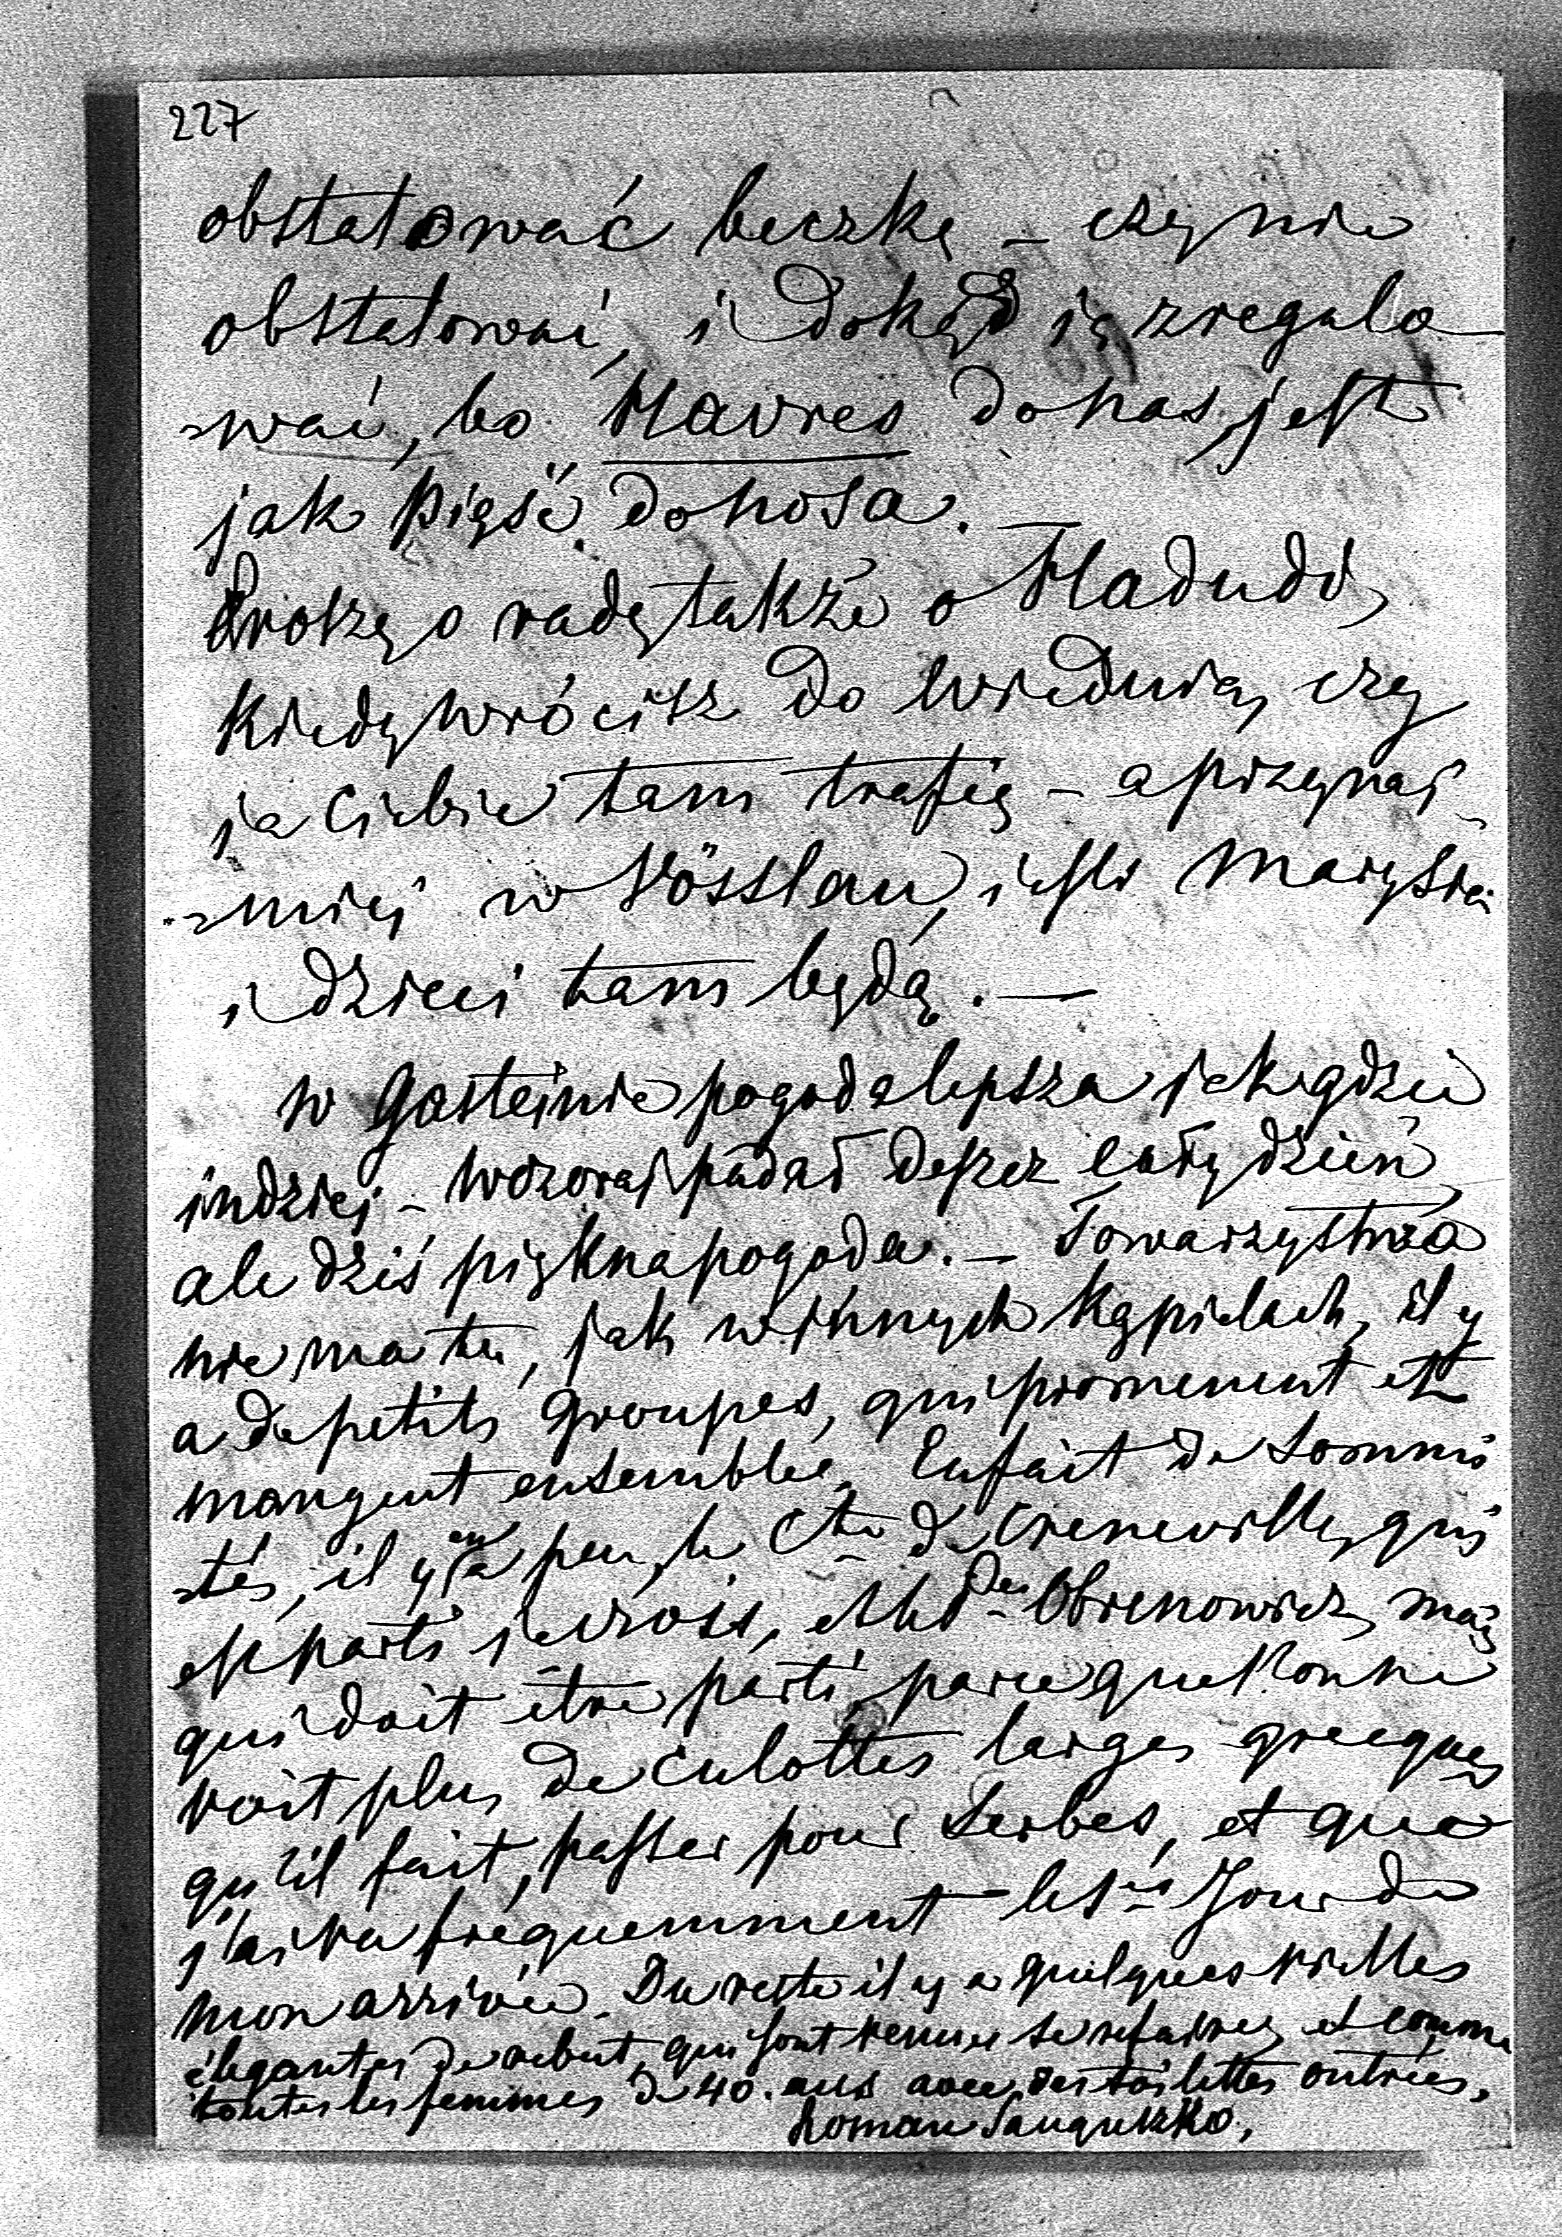 227
obstalować beczkę – czy nie
obstalować, i dokąd ją zregulo
-wać, bo Havres do nas jest
jak pięść do nosa. —
Proszę o radę także o Hadudi,
kiedy wrócisz do Wiednia, czy
ja Ciebie tam trafię – a przynaj
-mniej w Vösslau, jeśli Marysia
i dzieci tam będą. —
W Gasteinie pogoda lepsza jak gdzie
indziej – wczoraj padał deszcz cały dzień,
ale dziś piękna pogoda. – Towarzystwa
nie ma tu, jak w innych kąpielach, il y
a de petits groupes, qui promenent et
mangent ensemble. En fait de sommi
-tés, il y en a peu, le Cte de Creneville, qui
est parti je crois, et Md de Obrenowicz, mais
qui doit être parti, parce que l'on ne
voit plus de culottes larges grecques
qu'il fait passer pour Serbes, et que
j'ai vu fréquemment le 1er Jour de
mon arrivée. Du reste il y a quelques vielles
élegantes de rebut, qui sont venues se refaire, et comme
toutes les femmes de 40. ans avec des toilettes outrées.
Roman Sanguszko.